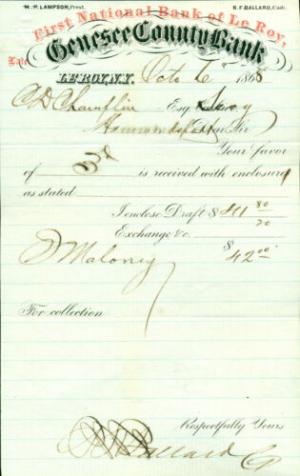 M. P. LAMPSON, Prest. S. F. BALLARD, Cash.
First National Bank of Le Roy,
Late
Genesee County Bank
LE ROY, N.Y. Octo 6 1868
C D Champlin Esq
Hammondsport Dear Sir
Your favor
of 3d is received with enclosure
as stated
I enclose Draft $ 41 80
Exchange &c. 20
$ 42 00
D Maloney
For collection
Respectfully Yours
S F Ballard C